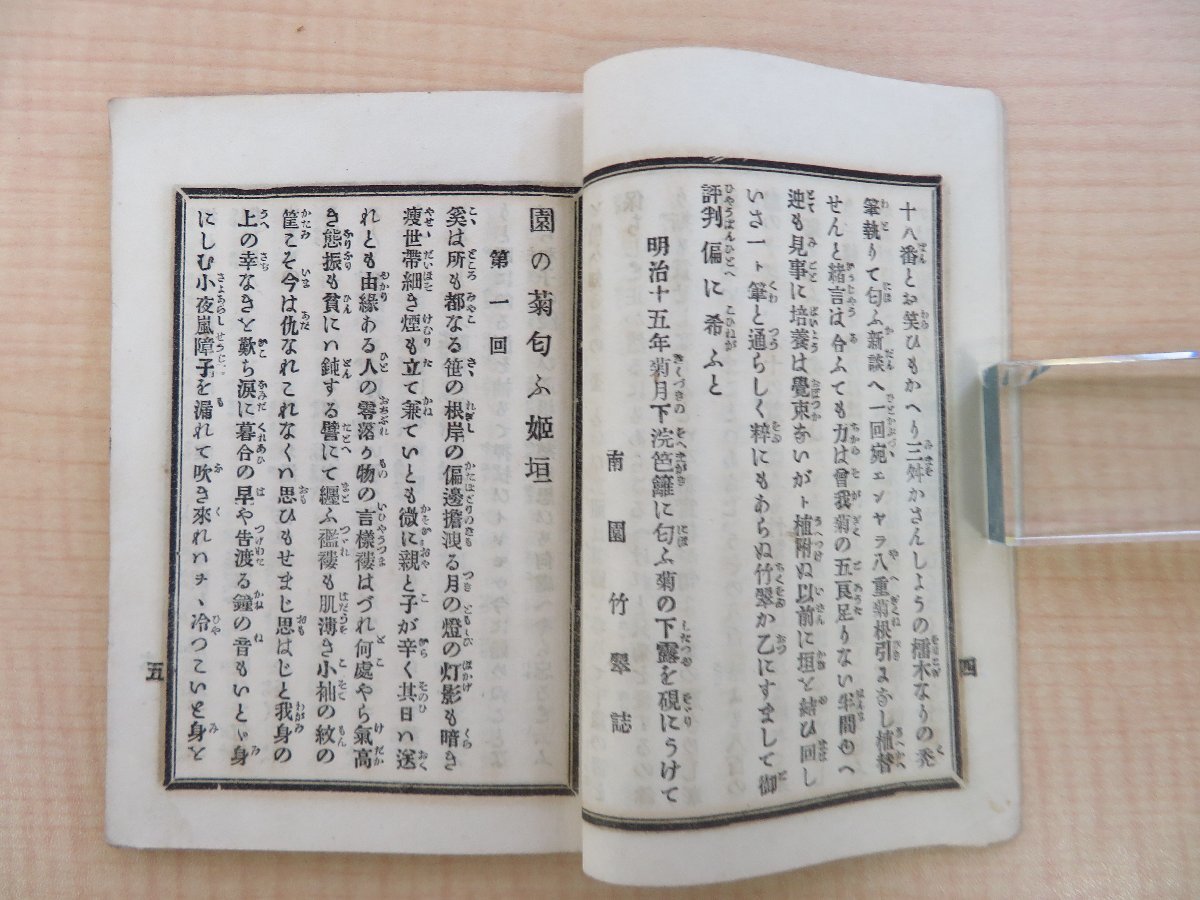 十八番とお笑ひもかへり三舛かさんしようの擂木なりの禿
筆執りて匂ふ新談へ一回宛ヱンヤヲ八重菊根引まなし植替
せんと緒言は合ふても力は曾我菊の五良足りない半間のへ
迚も見事に培養は覺束ないがト植附ぬ以前に垣を結ひ回し
いさ一ト筆と通らしく粹にもあらぬ竹翠か乙にすまして御
評判偏に希ふと
明治十五年菊月下浣笆籬に匂ふ菊の下露を硯にうけて
南園竹翠誌
四
園の菊匂ふ姫垣
第一回
爰は所も都なる笹の根岸の偏邊擔洩る月の燈の灯影も暗き
瘦世帶細き煙も立て兼ていとも微に親と子が辛く其日ハ送
れとも由緣ある人の零落り物の言樣褄はづれ何處やら氣高
き態振も貧にハ鈍する譬にて纒ふ襤褸も肌薄き小袖の紋の
筐こそ今は仇なれこれなくハ思ひもせまじ思はじと我身の
上の幸なきを歎ち淚に暮合の早や告渡る鐘の音もいとゞ身
にしむ小夜嵐障子を漏れて吹き來れハヂヽ冷つこいと身を
五